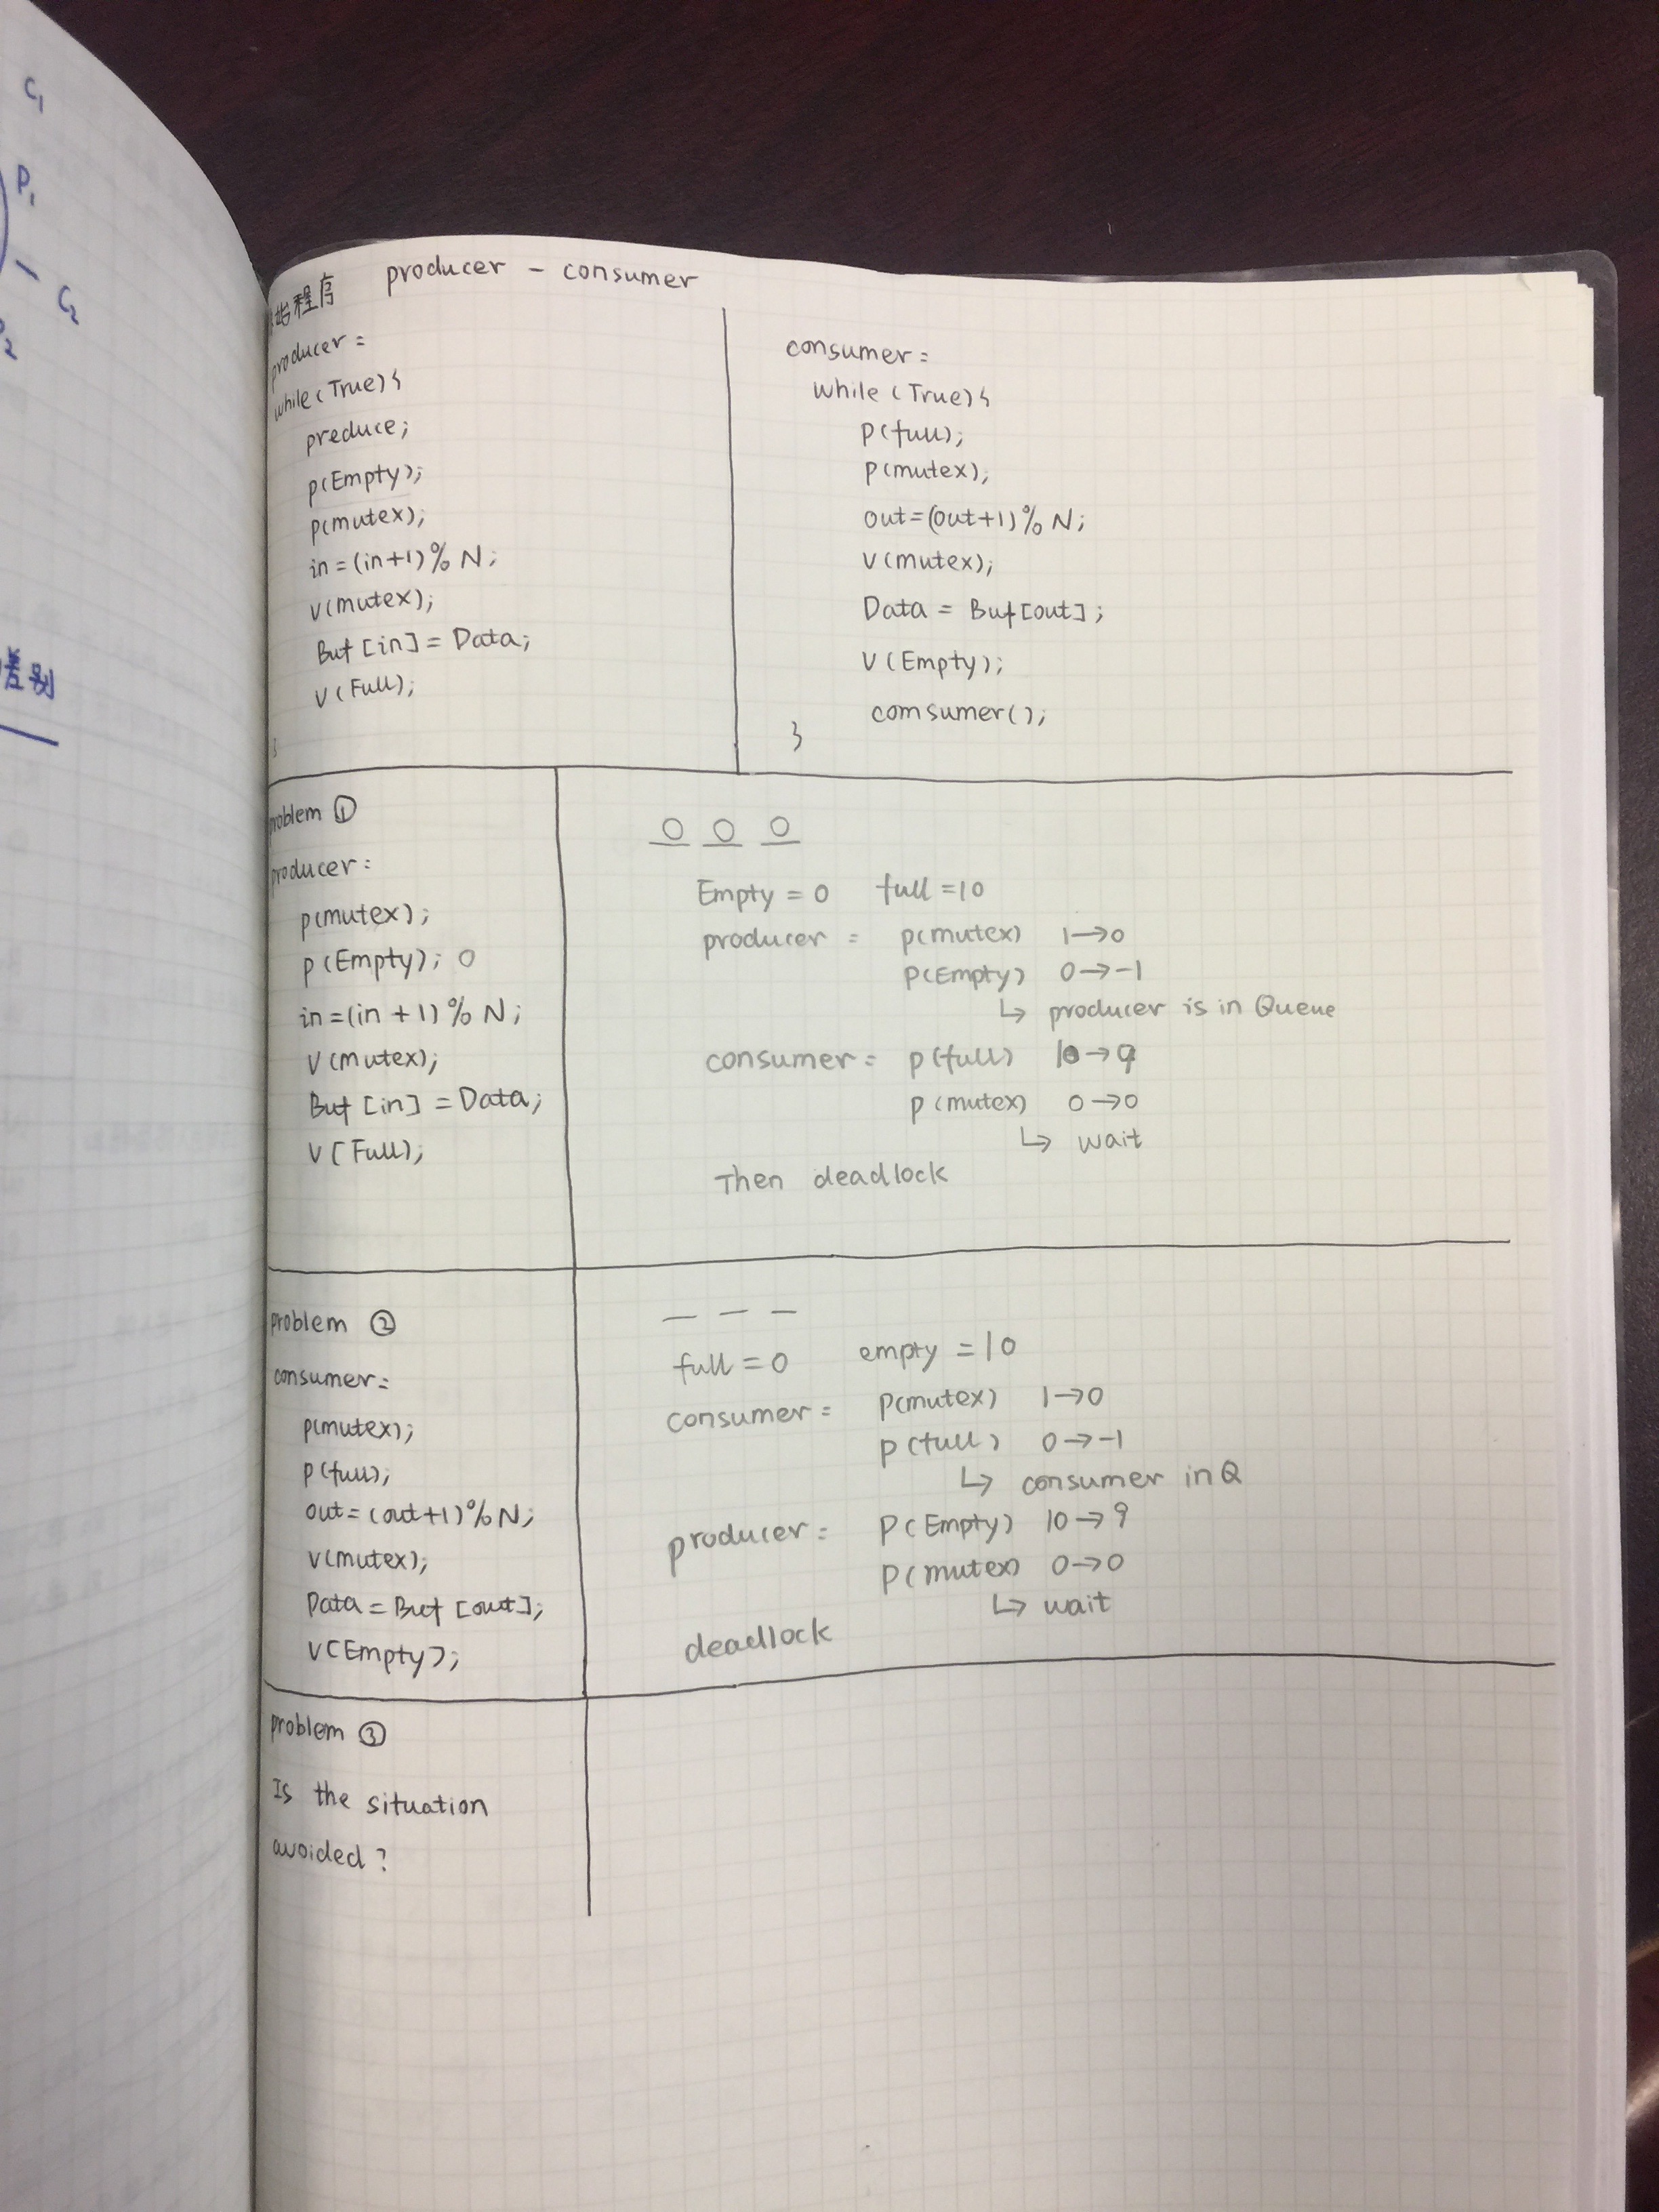 C1
P1
C2
2
差别
始程序 producer - consumer
producer:
while(True){
preduce;
p(Empty);
p(mutex);
in=(in+1)%N;
v(mutex);
Buf[in]=Data;
v(Full);
}
consumer:
while(True){
p(full);
p(mutex);
out=(out+1)%N;
v(mutex);
Data = Buf[out];
v(Empty);
comsumer();
}
problem ①
producer:
p(mutex);
p(Empty); 0
in=(in+1)%N;
v(mutex);
Buf[in]=Data;
v[Full);
O O O
Empty=0 full=10
producer: p(mutex) 1→0
p(Empty) 0→-1
↳ producer is in Queue
consumer: p(full) 10→9
p(mutex) 0→0
↳ wait
Then deadlock
problem ②
consumer:
p(mutex);
p(full);
out=(out+1)%N;
v(mutex);
Data=Buf[out];
v(Empty);
full=0 empty=10
consumer: p(mutex) 1→0
p(full) 0→-1
↳ consumer in Q
producer: P(Empty) 10→9
P(mutex) 0→0
↳ wait
deadlock
problem ③
Is the situation
avoided?